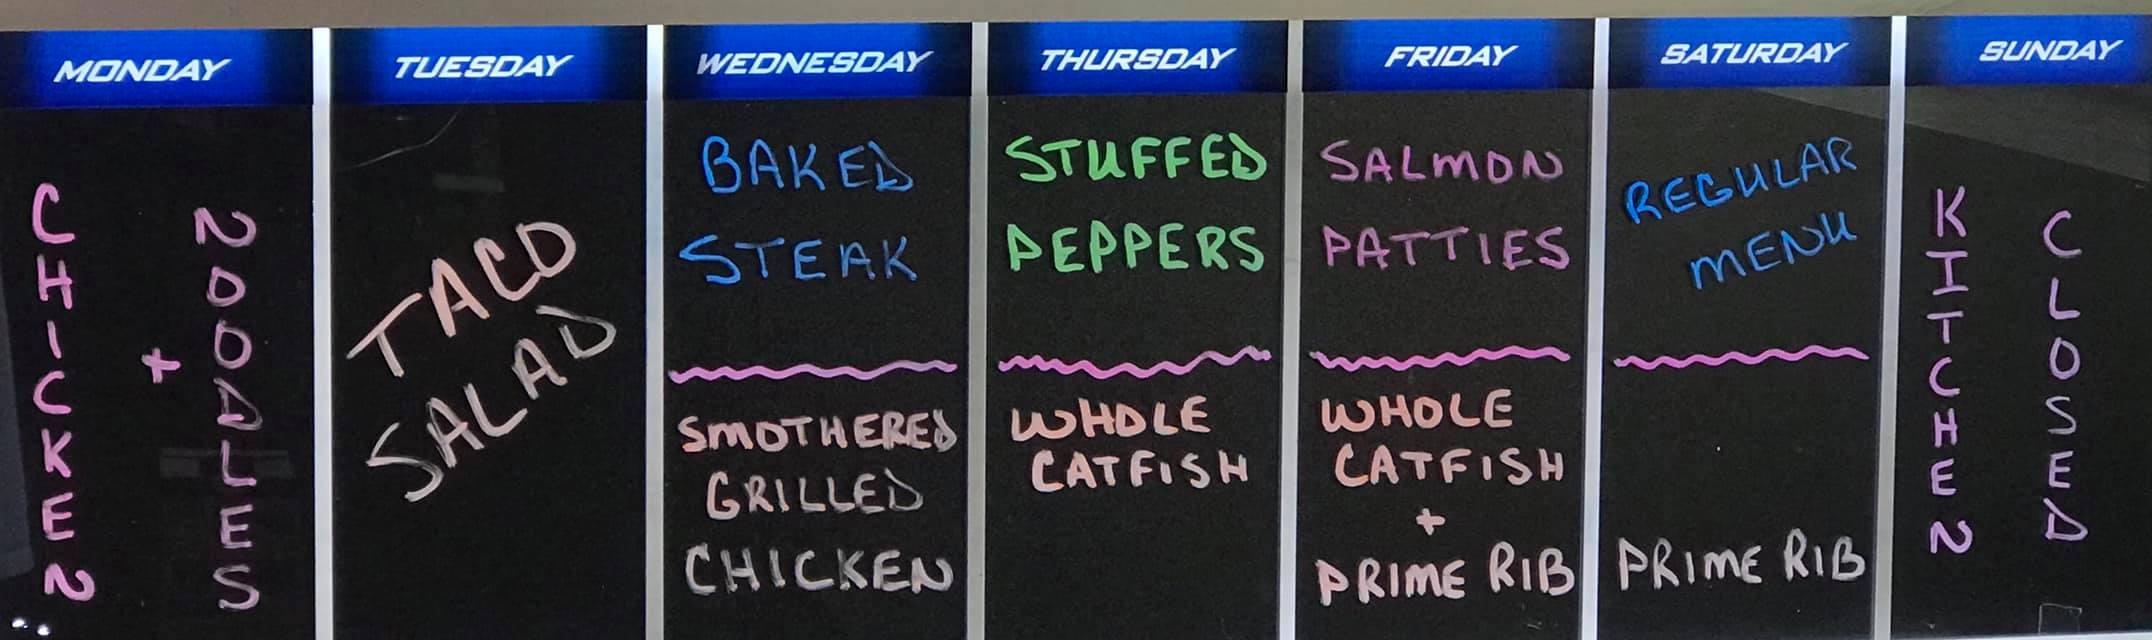 MONDAY
CHICKEN
+
NOODLES
TUESDAY
TACO
SALAD
WEDNESDAY
BAKED
STEAK
SMOTHERED
GRILLED
CHICKEN
THURSDAY
STUFFED
PEPPERS
WHOLE
CATFISH
FRIDAY
SALMON
PATTIES
WHOLE
CATFISH
+
PRIME RIB
SATURDAY
REGULAR
MENU
PRIME RIB
SUNDAY
KITCHEN
CLOSED